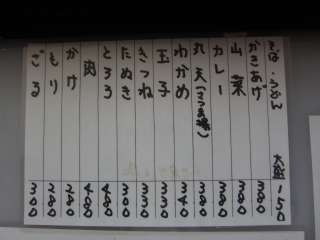 そば・うどん 大盛 150
かきあげ 380
山菜 380
カレー 380
丸天(さつま揚) 380
わかめ 340
玉子 330
きつね 330
たぬき 300
とろろ
肉
かけ 280
もり 280
ざる 300